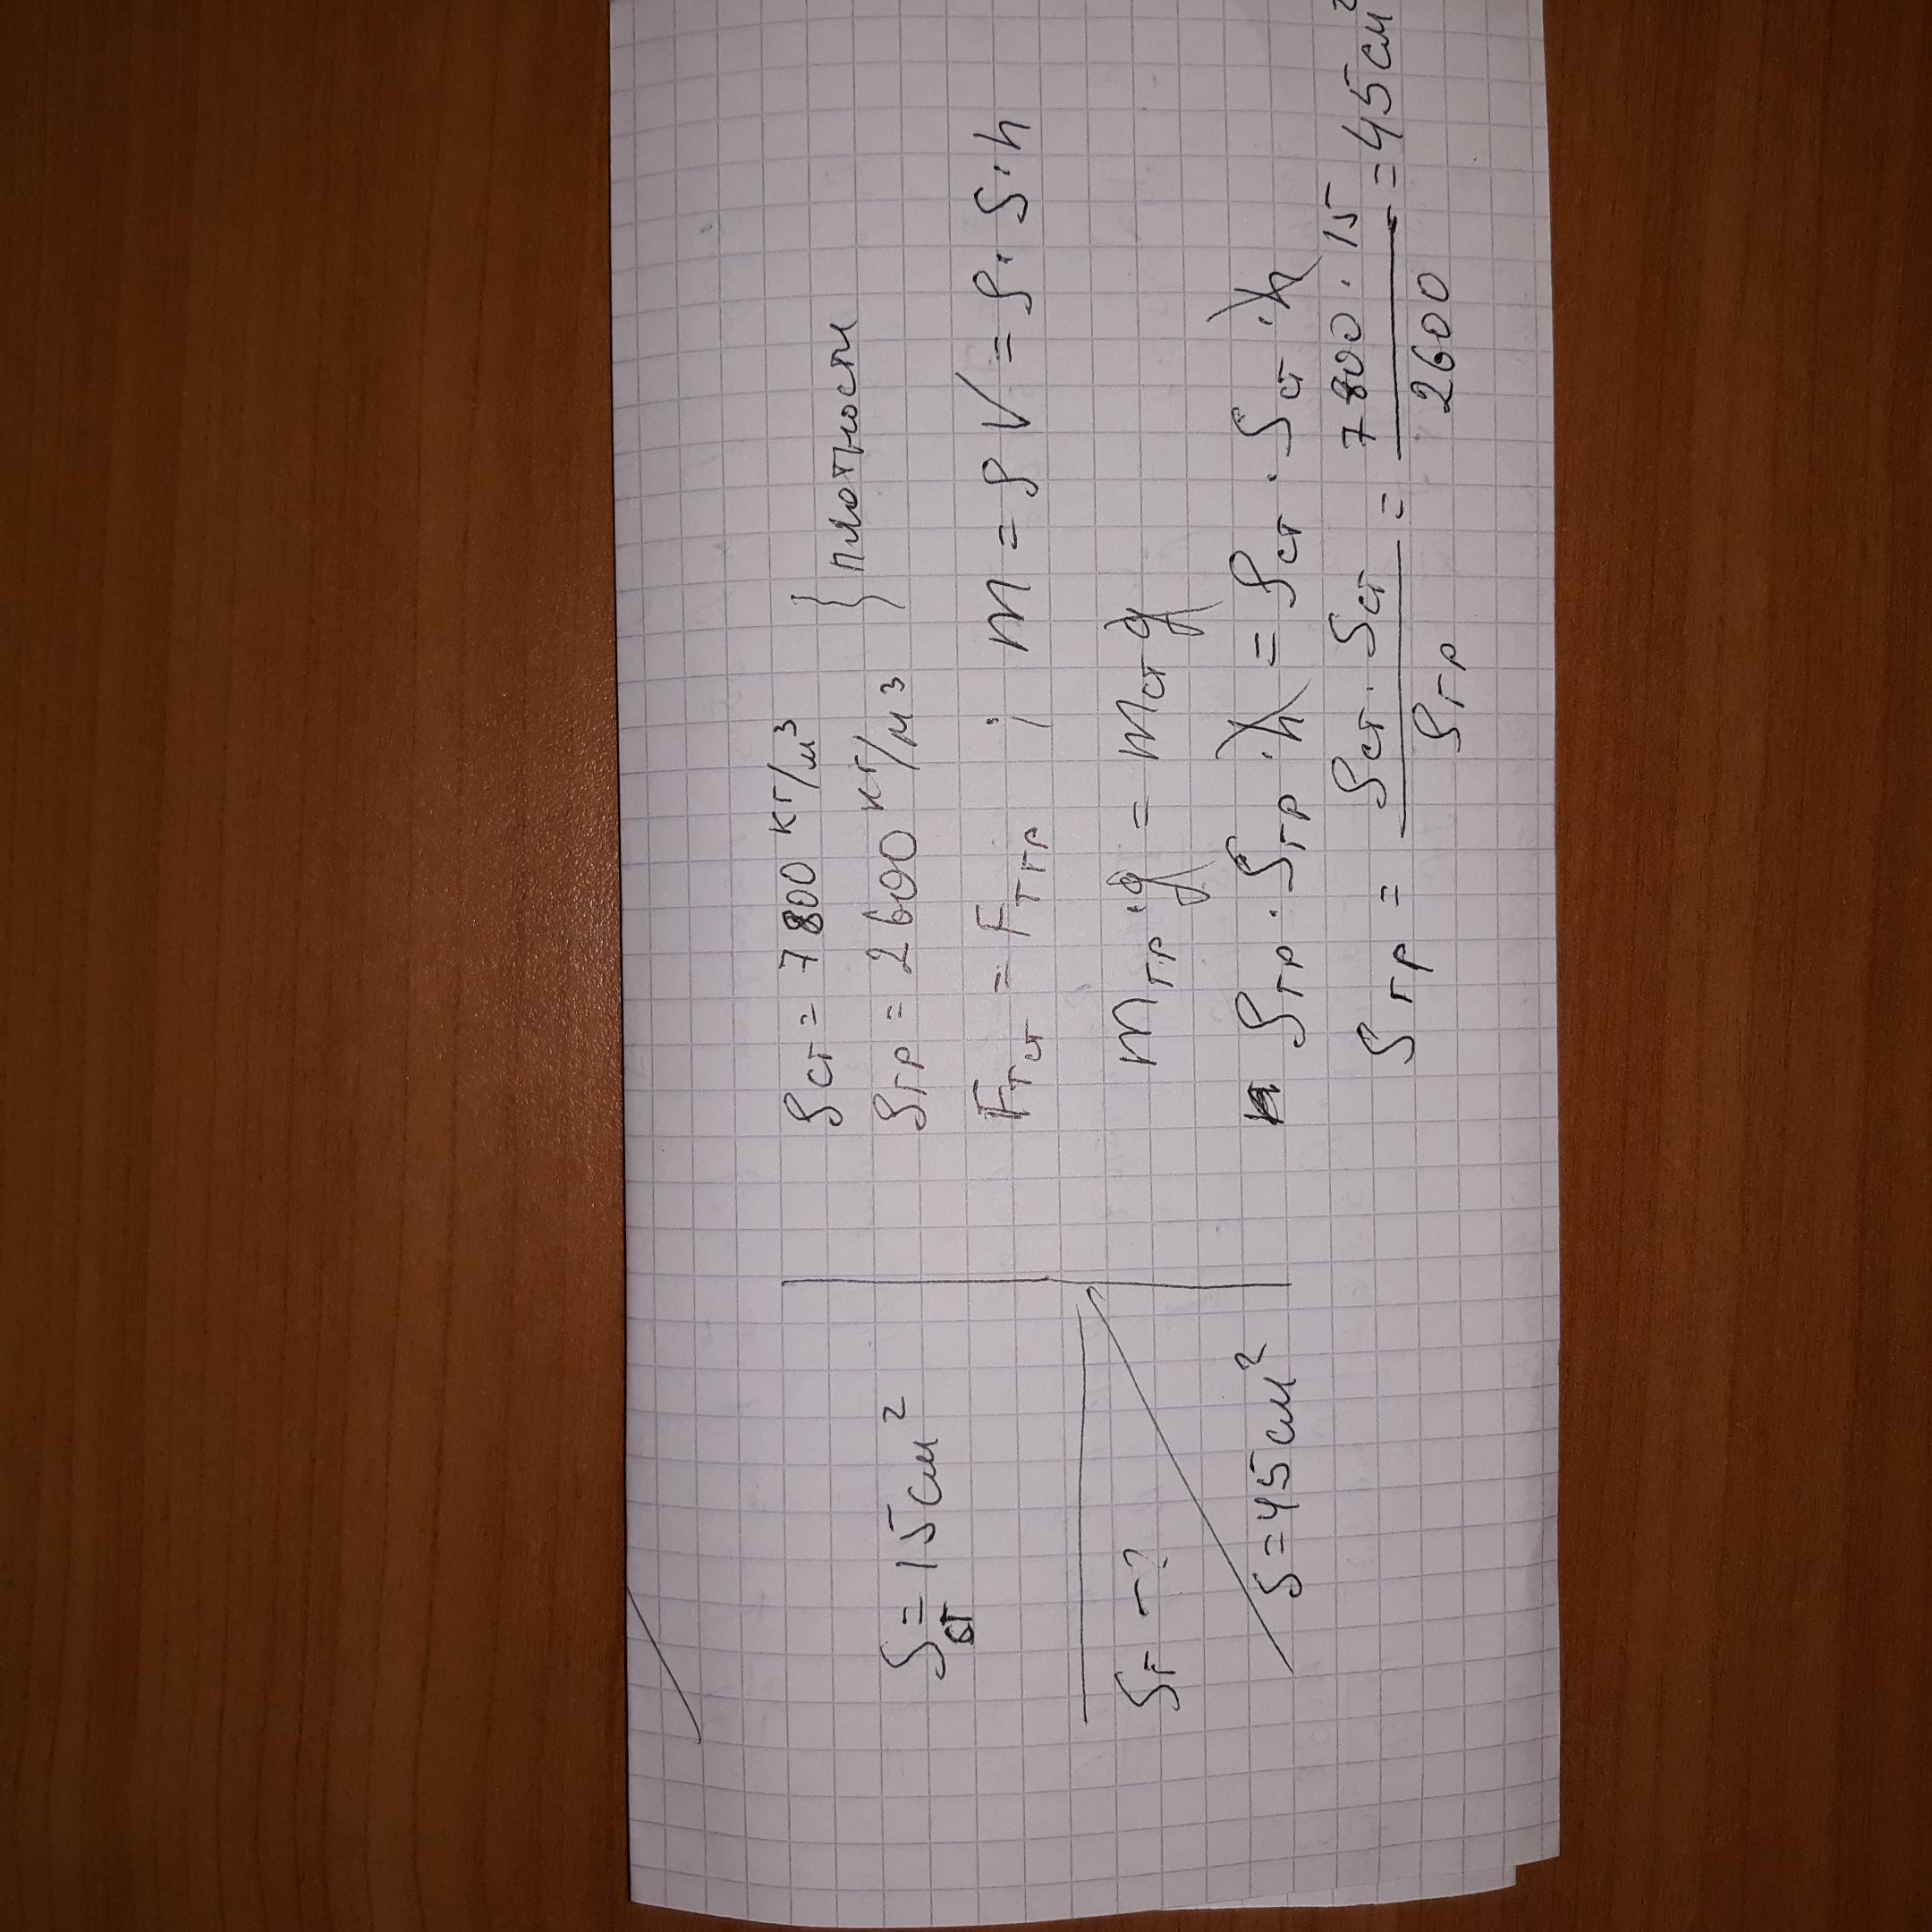 S ст = 15 см²
S г - ?
S = 45 см²
ρ ст = 7800 кг/м³
ρ гр = 2600 кг/м³ } плотности
F т ст = F т гр ; m = ρ V = ρ · S · h
m гр · g = m ст g
ρ гр · S гр · h = ρ ст · S ст · h
S гр = ρ ст · S ст / ρ гр = 7800 · 15 / 2600 = 45 см²